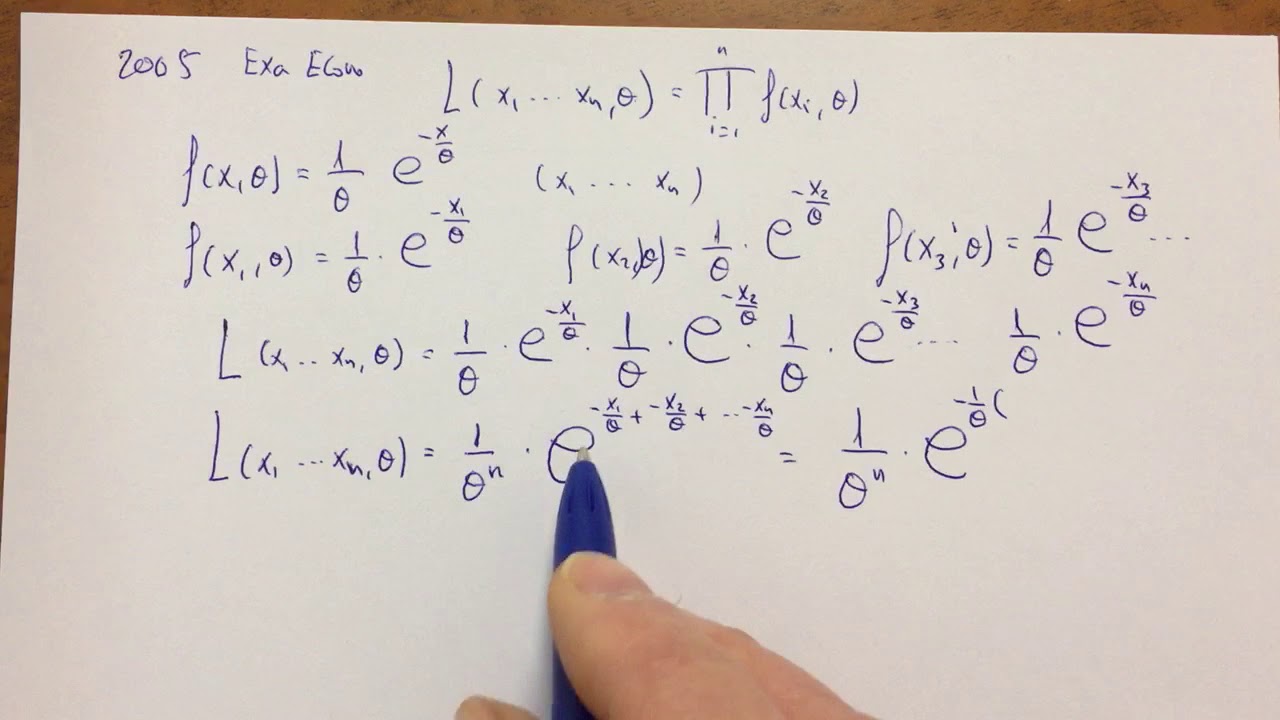 2005 Exa Econ
L(x₁ ... xₙ, θ) = ∏ᵢ₌₁ⁿ f(xᵢ, θ)
f(x, θ) = 1/θ e^(-x/θ) (x₁ ... xₙ)
f(x₁, θ) = 1/θ · e^(-x₁/θ) f(x₂, θ) = 1/θ · e^(-x₂/θ) f(x₃, θ) = 1/θ e^(-x₃/θ) ...
L(x₁ ... xₙ, θ) = 1/θ · e^(-x₁/θ) · 1/θ · e^(-x₂/θ) · 1/θ · e^(-x₃/θ) ... 1/θ · e^(-xₙ/θ)
L(x₁ ... xₙ, θ) = 1/θⁿ · e^(-x₁/θ + -x₂/θ + ... -xₙ/θ) = 1/θⁿ · e^(-1/θ (